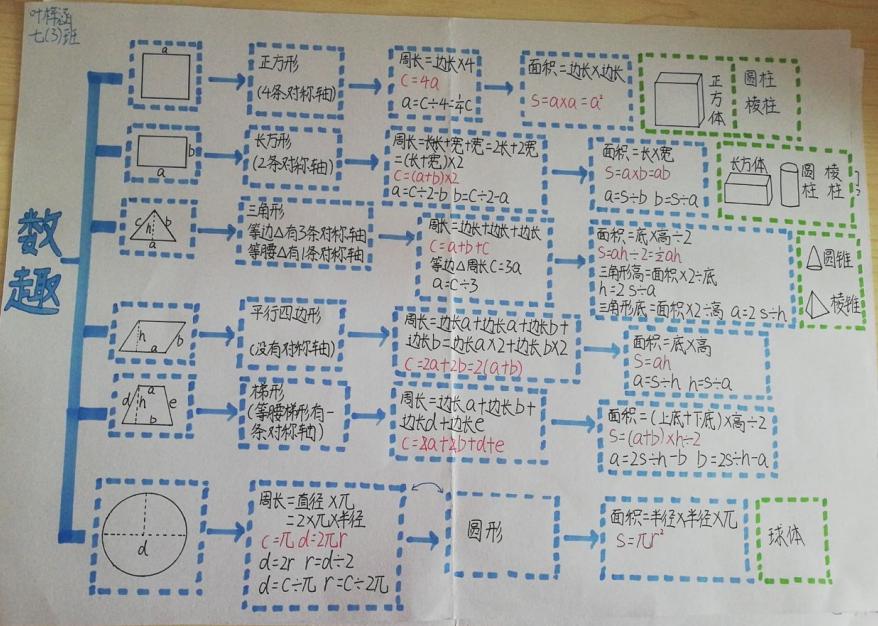 叶梓涵
七(3)班
数趣
a
正方形
(4条对称轴)
周长=边长×4
C=4a
a=C÷4=¼C
面积=边长×边长
S=a×a=a²
正方体
圆柱
棱柱
b
a
长方形
(2条对称轴)
周长=长+长+宽+宽=2长+2宽
=(长+宽)×2
C=(a+b)×2
a=C÷2-b b=C÷2-a
面积=长×宽
S=a×b=ab
a=S÷b b=S÷a
长方体
圆柱
棱柱
c h b
a
三角形
等边△有3条对称轴
等腰△有1条对称轴
周长=边长+边长+边长
C=a+b+c
等边△周长C=3a
a=C÷3
面积=底×高÷2
S=ah÷2=½ah
三角形高=面积×2÷底
h=2S÷a
三角形底=面积×2÷高 a=2S÷h
圆锥
棱锥
h b
a
平行四边形
(没有对称轴)
周长=边长a+边长a+边长b+
边长b=边长a×2+边长b×2
C=2a+2b=2(a+b)
面积=底×高
S=ah
a=S÷h h=S÷a
a
d h e
b
梯形
(等腰梯形有一
条对称轴)
周长=边长a+边长b+
边长d+边长e
面积=(上底+下底)×高÷2
S=(a+b)×h÷2
a=2S÷h-b b=2S÷h-a
d
周长=直径×π
=2×π×半径
C=πd=2πr
d=2r r=d÷2
d=C÷π r=C÷2π
圆形
面积=半径×半径×π
S=πr²
球体